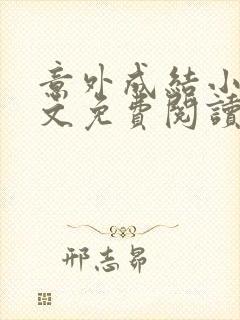 意外成結小
文免費閱讀
邢志昂